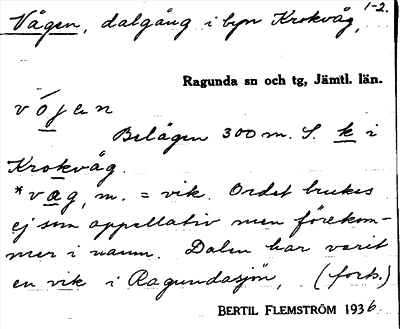 Vågen, dalgång i byn Krokvåg, 1-2.
Ragunda sn och tg, Jämtl. län.
vó̲jen
Belägen 300 m. S. k i
Krokvåg.
*våg, m. = vik. Ordet brukes
ej som appellativ men förekom-
mer i namn. Dalen har varit
en vik i Ragundasjön, (forts.)
BERTIL FLEMSTRÖM 1936